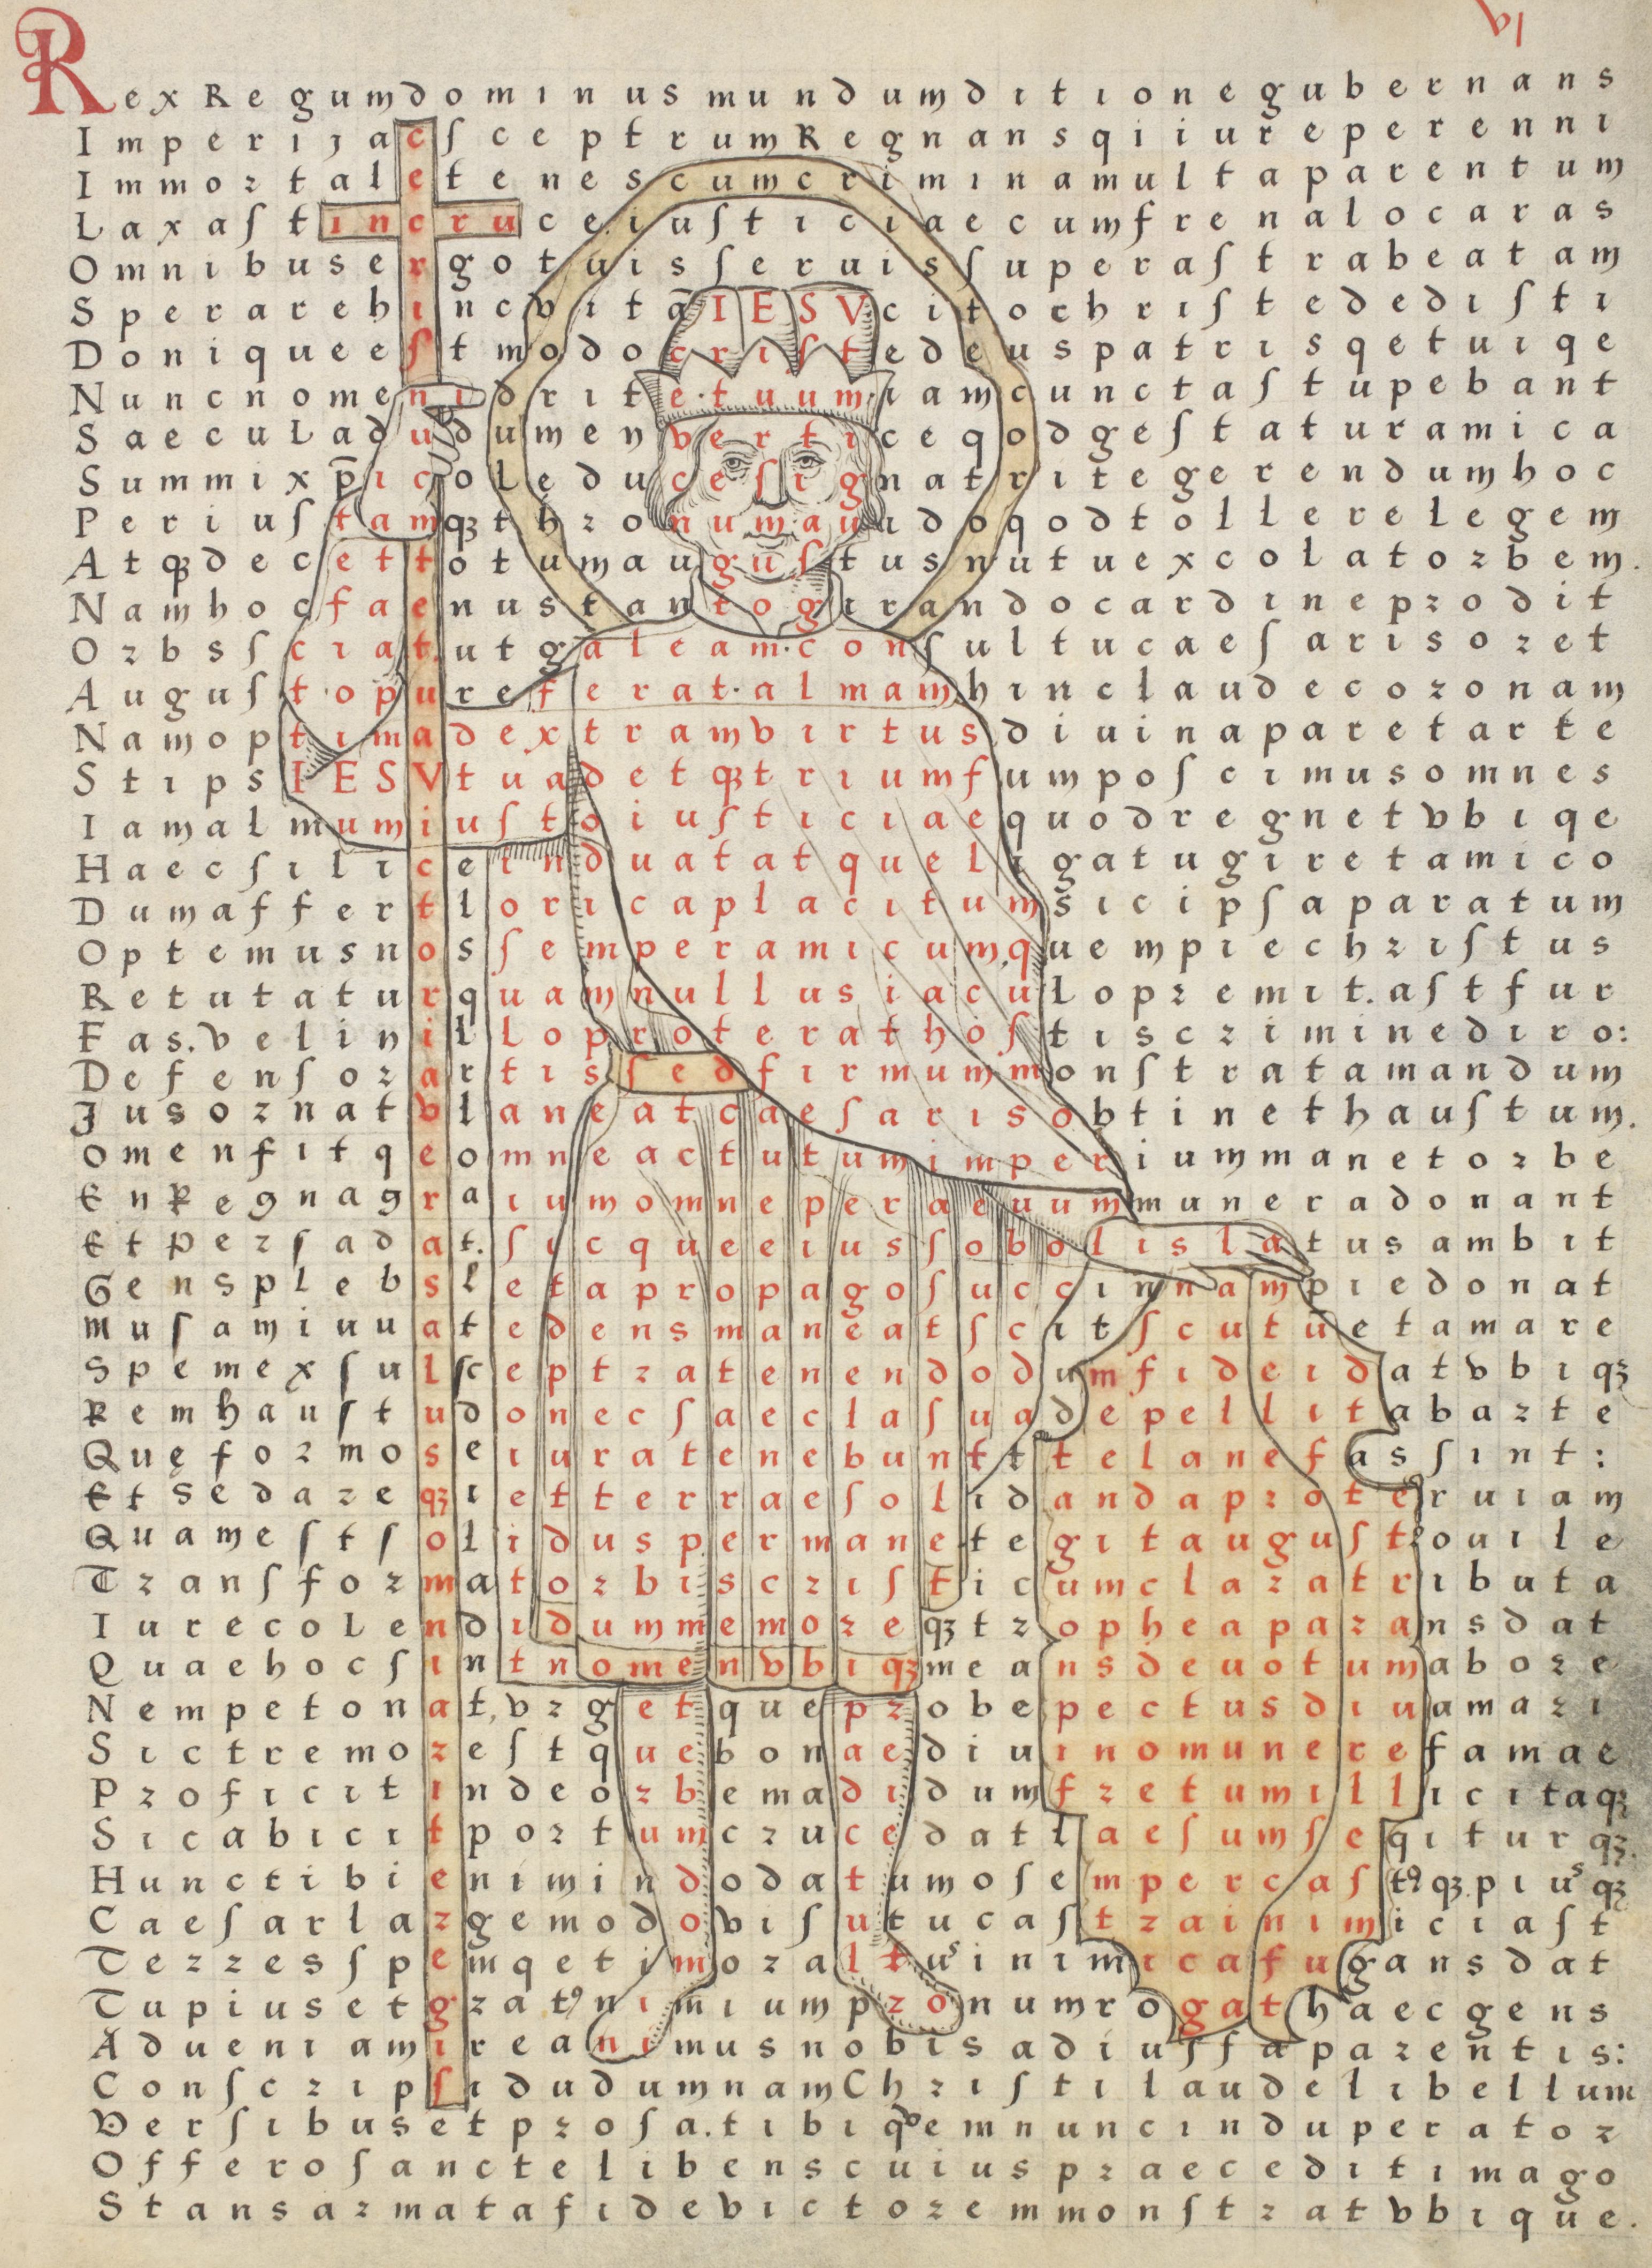 vi
RexRegumdominusmundumditionegubernans
ImperijacſceptrumRegnansqiiureperenni
Immoꝛtaletenescumcriminamultaparentum
Laxaſtincruceiuſticiaecumfrenalocaras
Omnibusergotuisſeruisſuperaſtrabeatam
SperarehincvitāIESVcitochriſtedediſti
Doniqueeſtmodocriſtedeuspatrisqetuiqe
Nuncnomenidrite·tuum·iamcunctaſtupebant
SaecuLadudumenverticeqodgeſtaturamica
Summixp̄icoleduceſignatritegerendumhoc
Periuſtamqꝫthꝛonumauudoqodtollereleg​em
Atqꝫdecettotumauguſtusnutuexcolatoꝛbem.
Namhocfaenustantogirandocardinepꝛodit
Oꝛbsſciat.utgaleam·conſultucaeſarisoꝛet
Auguſtopureferat·almamhinclaudecoꝛonam
Namoptimadextramvirtusdiuinaparetarte
StipsIESVtuadetqꝫtriumfumpoſcimusomnes
Iamalmumiuſtoiuſticiaequodregnetvbiqe
Haecſiliceinduatatqueligatugiretamico
Dumaffertloricaplacitumsicipſaparatum
Optemusnosſemperamicum.quempiechꝛiſtus
Retutaturquamnulluſiaculopꝛemit.aſtfur
Fas.velinilloproterathoſtiscꝛiminediro:
Defenſoꝛartisſedfirmummonſtratamandum
Juſoꝛnatvlaneatcaeſarisobtinethauſtum.
omenfitqeomneactutumimperiummanetoꝛbe
EnRegnagraiumomneperaeuummuneradonant
Etpeꝛſadat.ſicqueeiusſobolislatusambit
Gensplebsletapropagoſuccinnampiedonat
muſamiuuatedensmaneatſcitſcutuetamare
Spemexſulſceptꝛatenendodumfideidatvbiqꝫ
Remhauſtudonecſaeclaſuadepellitabaꝛte
Quęfoꝛmoseiuratenebunttelanefasſint:
Etſedaꝛeqꝫietterraeſolidandapꝛoteruiam
Quameſtſoliduspermanetegitauguſtouile
Tꝛanſfoꝛmatoꝛbiscꝛiſticumclaꝛatributa
IurecoLendidummemoꝛeqꝫtꝛopheapaꝛansdat
Quaehocſintnomenvbiqꝫmeansdeuotumaboꝛe
Nempetonat,vꝛgetquepꝛobepectusdiuamaꝛi
Sictremoꝛeſtquebonaediuinomunerefamae
Pꝛoficitindeoꝛbemadidumfꝛetumillicitaqꝫ
Sicabicitpoꝛtumcꝛucedatlaeſumſeqiturqꝫ.
Hunctibienimindodatumoſempercaſtꝰqꝫpiusqꝫ
Caeſarlaꝛgemodoviſutucaſtꝛainimiciaſt
Teꝛꝛesſpemqetimoꝛaltusinimicafugansdat
Tupiusetgꝛatꝰnimiumpꝛonumrogathaecgens
Adueniamireanimusnobisadiuſſapaꝛentis:
ConſcꝛipſidudumnamChꝛiſtilaudelibellum
Verſibusetpꝛoſa.tibiqvemnuncinduperatoꝛ
Offeroſanctelibenscuiuspꝛaeceditimago
Stansaꝛmatafidevictoꝛemmonſtꝛatvbique.